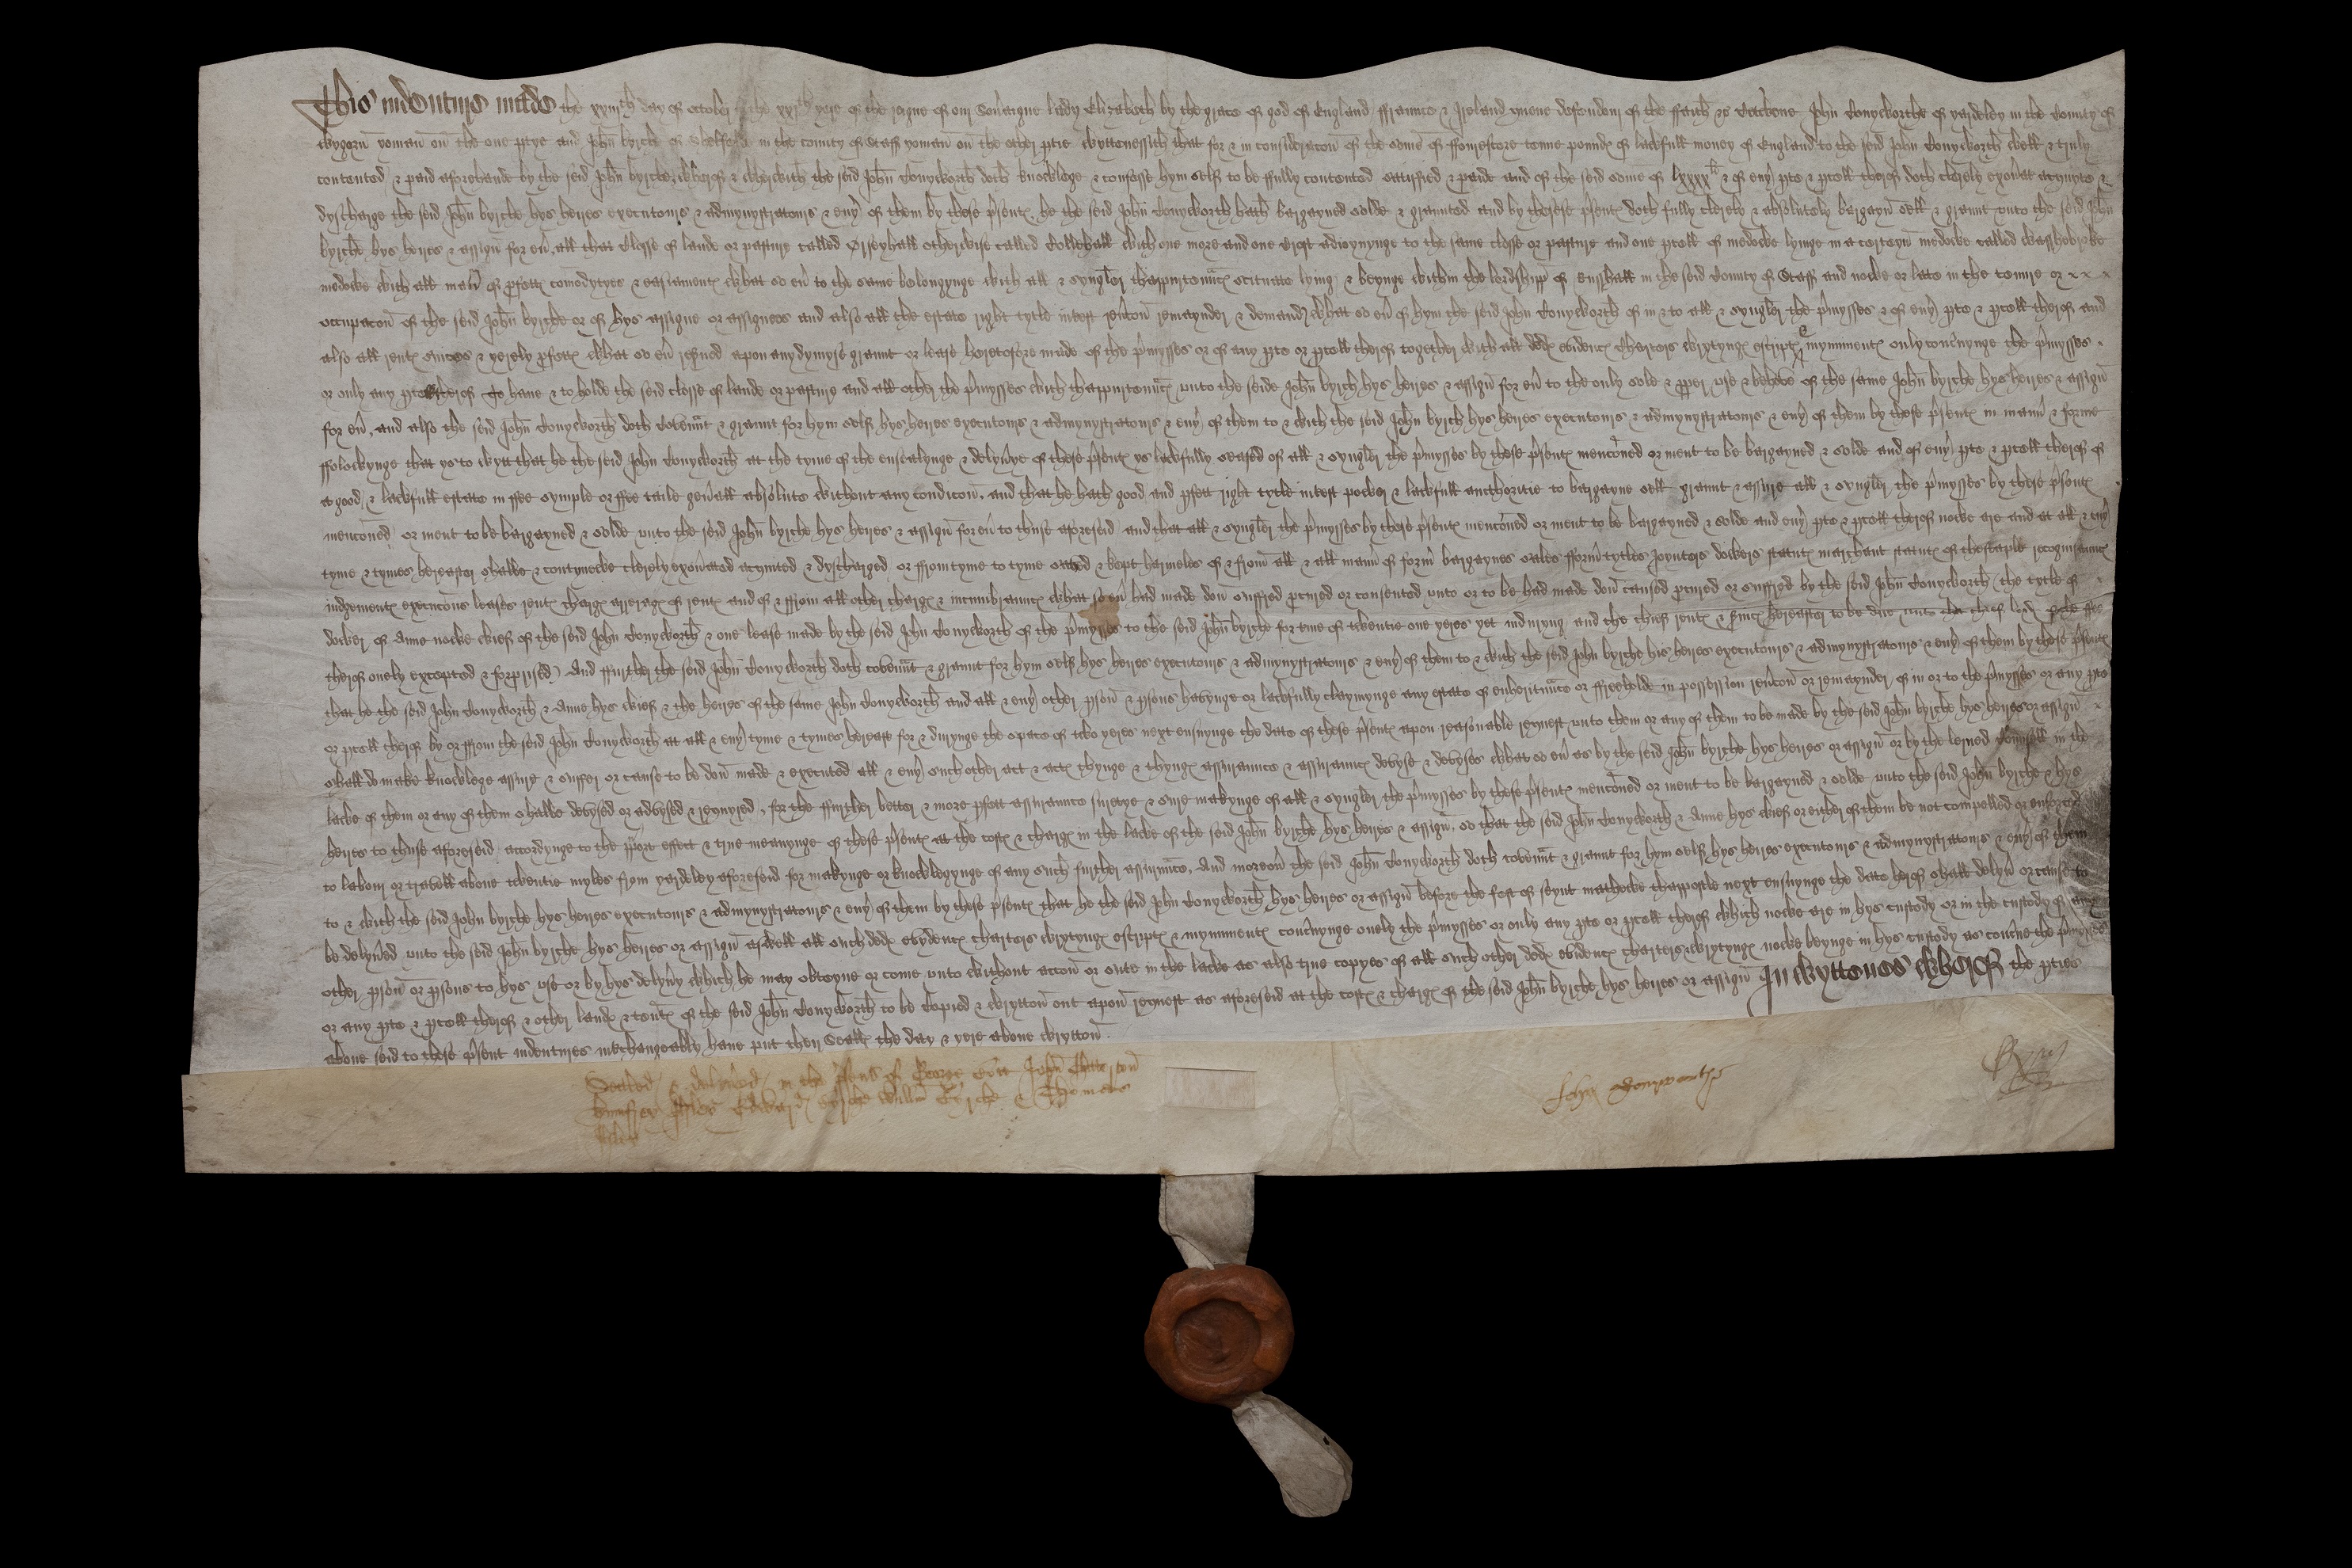 This indenture made the day of october the yere of the reigne of our Sov'aigne lady Elizabeth by the grace of god of England ffraunce & Ireland quene defendour of the ffaith &c Betwene John Conyworthe of yardeley in the County of
wygorn̄ yoman̄ on̄ the one ptye and John̄ byrche of in the county of Staff yoman̄ on̄ the other ptie wyttenessith that for & in consideracon̄ of the som̄e of ffourescore tenne poundes of lawfull money of England to the seid John Conyworth well & truly
contented & paid aforehande by the seid John̄ byrche wherof & wherwith the seid John̄ Conyworth doth knowlege & confesse hym self to be ffully contented satisfied & paide and of the seid some of lxxxx li & of eny pte & pcell therof doth clerely exon'at acquyte &
dyscharge the seid John̄ byrche hys heires executours & admynystratours & eny of them by these p'sentes, he the seid John Conyworth hath bargayned solde & graunted and by these p'sentes doth fully clerely & absolutely bargayn̄ sell & graunt unto the seid John
byrche hys heires & assign̄ for en̄, all that Closse of lande or pasture called otherwise called with one more and one adioynynge to the same closse or pasture and one pcell of medowe lyinge in a certeyn̄ medowe called
medowe with all man̄ of pfettes comodytyes & easiamentes what so en̄ to the same belongynge with all & syngler thappurtenn̄ces scituate lying & beynge within the lordshipp of Russhall in the seid County of Staff and nowe or late in the tenure or
occupacon̄ of the seid John̄ byrche or of hys assigne or assignees and also all the estate right tytle int'est rev'con̄ remaynder & demand what so en̄ of hym the seid John Conyworth of in & to all & syngler the p'mysses & of eny pte & pcell therof and
also all rentes s'vices & yerely pfettes what so en̄ res'ved apon any dymyse graunt or lease heretofore made of the p'mysses or of any pte or pcell therof together with all dedes evidences Charters wrytynges escriptes & mynumentes only conc'nynge the p'mysses
or only any pte therof To have & to holde the seid closse of lande or pasture and all other the p'mysses with thappurtenn̄ces unto the seide John̄ byrch hys heires & assign̄ for en̄ to the only sole & pper use & behove of the same John̄ byrche hys heires & assign̄
for en̄, and also the seid John̄ Conyworth doth coven̄nt & graunt for hym self hys heires executours & admynystratours & eny of them to & with the seid John̄ byrch hys heires executours & admynystratours & eny of them by these p'sentes in mann̄ & forme
ffolowynge that ys to wytt that he the seid John Conyworth at the tyme of the ensealynge & delyv'ye of these p'sentes ys lawfully seased of all & syngler the p'mysses by these p'sentes menc'oned or ment to be bargayned & solde and of eny pte & pcell therof of
a good & lawfull estate in ffee symple or ffee taile gen'all absolute without any condicon̄, and that he hath good and pfett right tytle int'est power & lawfull aucthoritie to bargayne sell graunt & assure all & syngler the p'mysses by these p'sentes
menc'oned or ment to be bargayned & solde unto the seid John̄ byrche hys heires & assign̄ for en̄ to thuse aforeseid and that all & syngler the p'mysses by these p'sentes menc'oned or ment to be bargayned & solde and eny pte & pcell therof nowe are and at all & eny
tyme & tymes hereafter shalbe & contynewe clerely exon'ated acquited & dyscharged or ffrom tyme to tyme saved & kept harmeles of & ffrom all & all mann̄ of form̄ bargaynes sales fform̄ tytles Joynters dowers statutes m'chant statutes of the staple recognisaunces
iudgementes execucons leases rentes charges arrerages of rentes and of & ffrom all other charges & incumbraunces what so en̄ had made don̄ suffred pcured or consented unto or to be had made don̄ caused pcured or suffred by the seid John̄ Conyworth (the tytle of
dower of Anne nowe wief of the seid John Conyworth & one lease made by the seid John Conyworth of the p'mysses to the seid John̄ byrche for t'me of twentie one yeres yet induryng and the chief rentes & s'vices hereafter to be due unto the chief lord of the ffee
therof onely excepted & forprised) And ffurther the seid John Conyworth doth coven̄nt & graunt for hym self hys heires executours & admynystratours & eny of them to & with the seid John byrche his heires executours & admynystratours & eny of them by these p'sentes
that he the seid John Conyworth & Anne hys wief & the heires of the same John Conyworth and all & eny other pson̄ & psons havynge or lawfully claymynge any estate of enheritn̄ce or ffreeholde in possession rev'con̄ or remaynder of in or to the p'mysses or any pte
or pcell therof by or ffrom the seid John Conyworth at all & eny tyme & tymes hereaft for & durynge the space of two yeres next ensuynge the date of these p'sentes apon reasonable request unto them or any of them to be made by the seid John̄ byrche hys heires or assign̄
shall do make knowlege assure & suffer or cause to be don̄ made & executed all & eny such other act & actes thynge & thynges assuraunce & assuraunces devyse & devyses what so en̄ as by the seid John̄ byrche hys heires or assign̄ or by the lerned councell in the
lawe of them or any of them shalbe devysed or advysed & requyred, for the ffurther better & more pfett assuraunce suretye & sure makynge of all & syngler the p'mysses by these p'sentes menc'oned or ment to be bargayned & solde unto the seid John̄ byrche & hys
heires to thuse aforeseid accordynge to the p'port effect & true meanynge of these p'sentes at the costes & charges in the lawe of the seid John̄ byrche hys heires & assign̄, so that the seid John̄ Conyworth & Anne hys wief or either of them be not compelled or enforced
to labour or travell above twentie myles from yardeley aforeseid for makynge or knowlegynge of any such further assurn̄ce. And moreov' the seid John̄ Conyworth doth coven̄nt & graunt for hym self hys heires executours & admynystratours & eny of them
to & with the seid John byrche hys heires executours & admynystratours & eny of them by these p'sentes that he the seid John Conyworth hys heires or assign̄ before the fest of seynt mathewe thappostle next ensuynge the date herof shall delyv' or cause to
be delyv'ed unto the seid John byrche hys heires or assign̄ aswell all such dedes evydences charters wrytynges escriptes & mynumentes conc'nynge onely the p'mysses or only any pte or pcell therof which nowe are in hys custody or in the custody of any
other pson̄ or psons to hys use or by hys delyv'y which he may obteyne or come unto without accon̄ or sute in the lawe as also true copyes of all such other dedes evidences charters wrytynges nowe beynge in hys custody as conc'ne the p'mysses
or any pte & pcell therof & other landes & ten'tes of the seid John Conyworth to be copied & wrytton̄ out apon̄ request as aforeseid at the costes & charges of the seid John̄ byrche hys heires or assign̄ In wyttenes wherof the pties
above seid to these p'sent indentures interchangeably have put their Sealles the day & yere above wrytton̄.
Sealed & delyv'ed in the p'sens of George John
Edward byrche Willm Byrche & Thomas
John Conyworthe